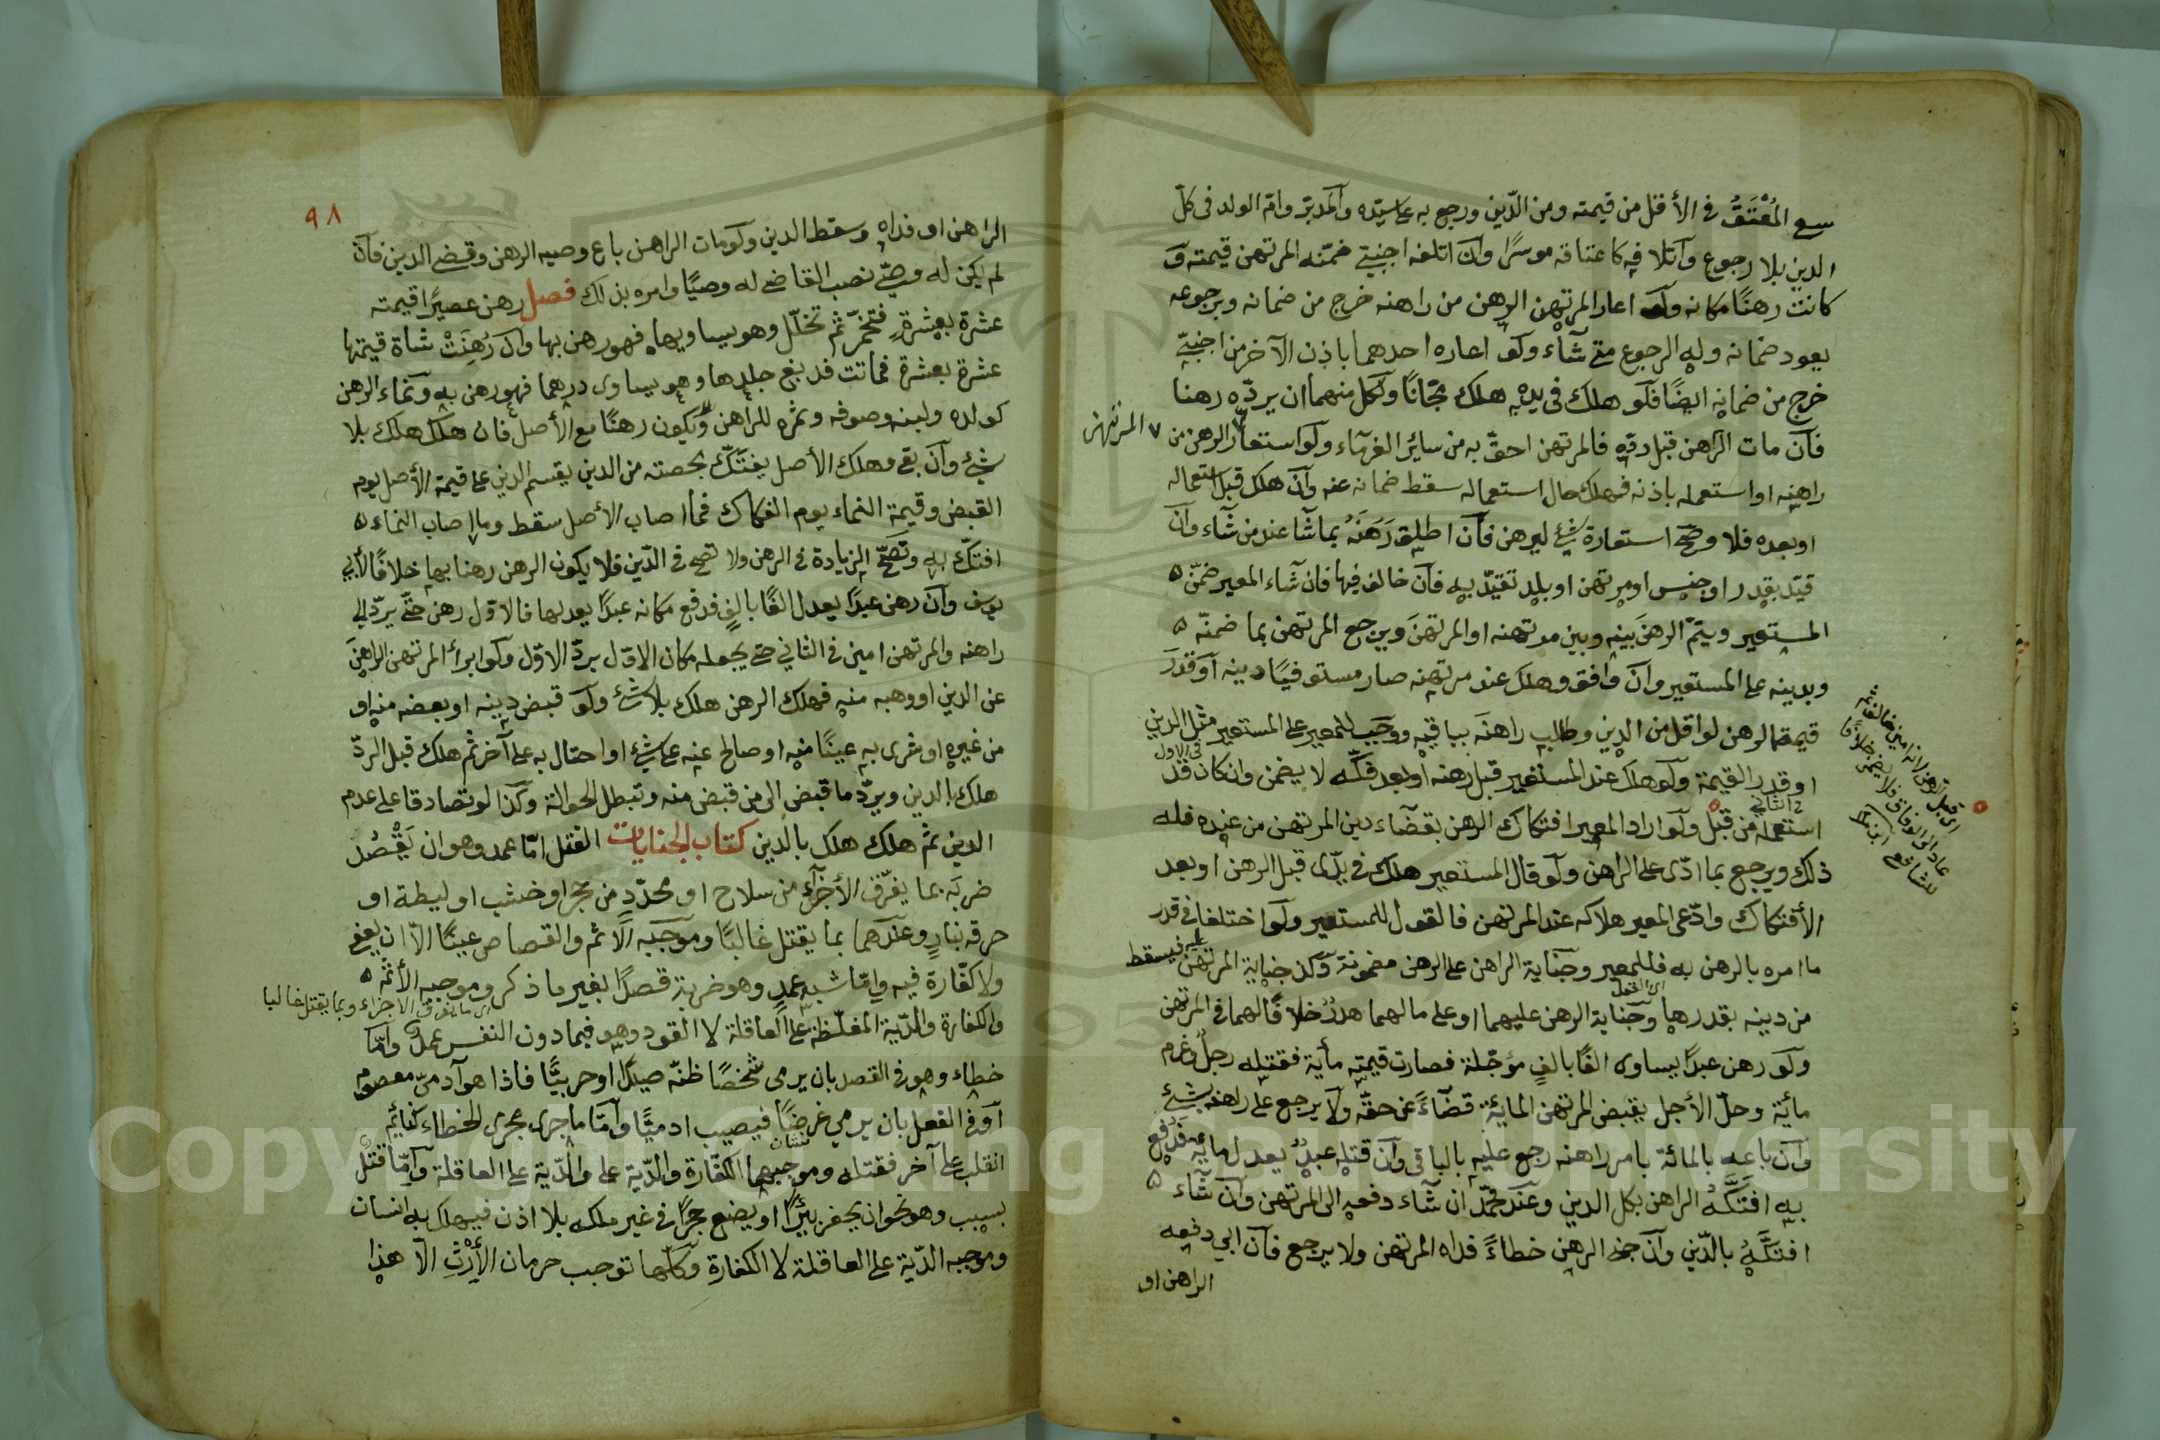 سعى المُعْتَقُ في الأقل من قيمته ومن الدّين ورجع به على سيّده والمدبّر وامّ الولد في كلّ
الدين بلا رجوع واتلافه كاعتاقه موسرًا وان اتلفه اجنبيّ ضمّنه المرتهن قيمته و
كانت رهنًا مكانه ولو اعار المرتهن الرهن من راهنه خرج من ضمانه وبرجوعه
يعود ضمانه وله الرجوع متى شاء ولو اعاره احدهما باذن الآخر من اجنبيّ
خرج من ضمانه ايضًا فلو هلك في يده هلك مجّانًا ولكل منهما ان يردّه رهنا
فان مات الراهن قبل ردّه فالمرتهن احقّ به من سائر الغرماء ولو استعار الرهن من
المرتهن
راهنه او استعمله باذنه فهلك حال استعماله سقط ضمانه عنه وان هلك قبل استعماله
او بعده فلا وصحّ استعارة شئ ليرهن فان اطلق رهنه بما شا عند من شاء وان
قيّد بقدر او جنس او مرتهن او بلد تقيّد به فان خالف فيها فان شاء المعير ضمّن
المستعير ويتمّ الرهن بينه وبين مرتهنه او المرتهن ويرجع المرتهن بما ضمنّه
وبدينه على المستعير وان وافق وهلك عند مرتهنه صار مستوفيًا دينه او قدر
قيمة الرهن لو اقل من الدين وطالب راهنه بباقيه ووجب للمعير على المستعير مثل الدين
في الاول
او قدر القيمة ولو هلك عند المستعير قبل رهنه او بعد فكّه لا يضمن وان كان قد
في الثاني
استعمله من قبل ولو اراد المعير افتكاك الرهن بقضاء دين المرتهن من عنده فله
ذلك ويرجع بما ادّى على الراهن ولو قال المستعير هلك في يدّى قبل الرهن او بعد
الأفتكاك وادّعى المعير هلاكه عند المرتهن فالقول للمستعير ولو اختلفا في قدر
ما امره بالرهن به فللمعير وجناية الراهن على الرهن مضمونة وكذا جناية المرتهن عليه فيسقط
من دينه بقدرها وجناية الرهن عليهما او على مالهما هدرٌ خلافًا لهما في المرتهن
ولو رهن عبدًا يساوى الفًا بالفٍ مؤجّلة فصارت قيمته مأية فقتله رجلٌ وغرم
مائة وحلّ الأجل يقبض المرتهن الماية قضاءً عن حقّه ولا يرجع على راهنه بشئ
وان باعه بالمائة بامر راهنه رجع عليه بالباقى وان قتله عبدٌ يعدل ماية فدفع
به افتكّه الراهن بكل الدين وعند محمّد ان شاء دفعه الى المرتهن وان شاء
افتكّه بالدّين وان جنى الرهن خطاءً فداه المرتهن ولا يرجع فان ابى دفعه
الراهن او
٩٨
الراهن او فداه وسقط الدين ولو مات الراهن باع وصيه الرهن وقضى الدين فان
لم يكن له وصيّ نصب القاضى له وصيًّا وامره بذلك فصل رهن عصيرًا قيمته
عشرة بعشرةٍ فتخمّر ثم تخلّل وهو يساويها فهو رهن بها وان رُهِنَتْ شاة قيمتها
عشرة بعشرة فماتت فدبغ جلدها وهو يساوى درهما فهو رهن به ونماء الرهن
كولده ولبنه وصوفه وثمره للراهن ويكون رهنًا مع الأصل فان هلك هلك بلا
شئ وان بقى وهلك الأصل يفتكّ بحصته من الدين يقسم الدين على قيمة الأصل يوم
القبض وقيمة النماء يوم الفكاك فما اصاب الأصل سقط وما اصاب النماء
افتكّ به وتصحّ الزيادة في الرهن ولا تصح في الدّين فلا يكون الرهن رهنا بها خلافًا لأبي
يوسف وان رهن عبدًا يعدل الفًا بالفٍ فدفع مكانه عبدًا يعدلها فالاول رهن حتّى يردّ الى
راهنه والمرتهن امين في الثاني حتى يجعله مكان الاول بردّ الاوّل ولو ابرأ المرتهن الراهن
عن الدين او وهبه منه فهلك الرهن هلك بلا شئ ولو قبض دينه او بعضه منه او
من غيره او شرى به عينًا منه او صالح عنه على شئ او احتال به على آخر ثم هلك قبل الردّ
هلك بالدين ويردّ ما قبض الى من قبض منه وتبطل الحوالة وكذا لو تصادقا على عدم
الدين ثم هلك هلك بالدين كتاب الجنايات القتل امّا عمد وهو ان يَقْصُد
ضربَه بما يفرّق الأجزاء من سلاح او محدّدٍ من حجر او خشب او ليطة او
حرقه بنارٍ وعندهما بما يقتل غالبًا وموجبه الاثم والقصاص عينًا الّا ان يعفى
ولا كفّارة فيه وامّا شبه عمدٍ وهو ضربة قصدًا بغير ما ذكر وموجبه الأثم
اى ما يفرق الاجزاء وبما يقتل غالبا
والكفارة والدّية المغلّظة على العاقلة لا القود وهو فيما دون النفس عمدٌ وامّا
خطاء وهو في القصد بان يرمى شخصًا ظنّه صيدًا او حربيًّا فاذا هو آدمىّ معصوم
او في الفعل بان يرمي غرضًا فيصيب ادميًّا وامّا ما جرى مجرى الخطاء كنايم
انقلب على آخر فقتله وموجبهما الكفّارة والدّية على العاقلة وامّا قتل
بسبب وهو نحو ان يحفر بئرًا او يضع حجرًا في غير ملكه بلا اذن فيهلك به انسان
وموجبه الدّية على العاقلة لا الكفارة وكلّها توجب حرمان الأرْثِ الّا هذا
Copyright © King Saud University